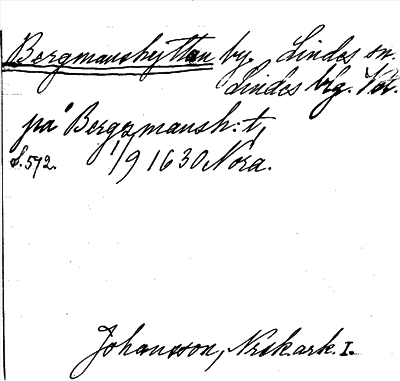 Bergmanshyttan by. Lindes sn.
Lindes brg. Vstm.
på Bergzmansh:t,
s. 572. 1/9 1630 Nora.
Johansson, Nrsk. ark. I.